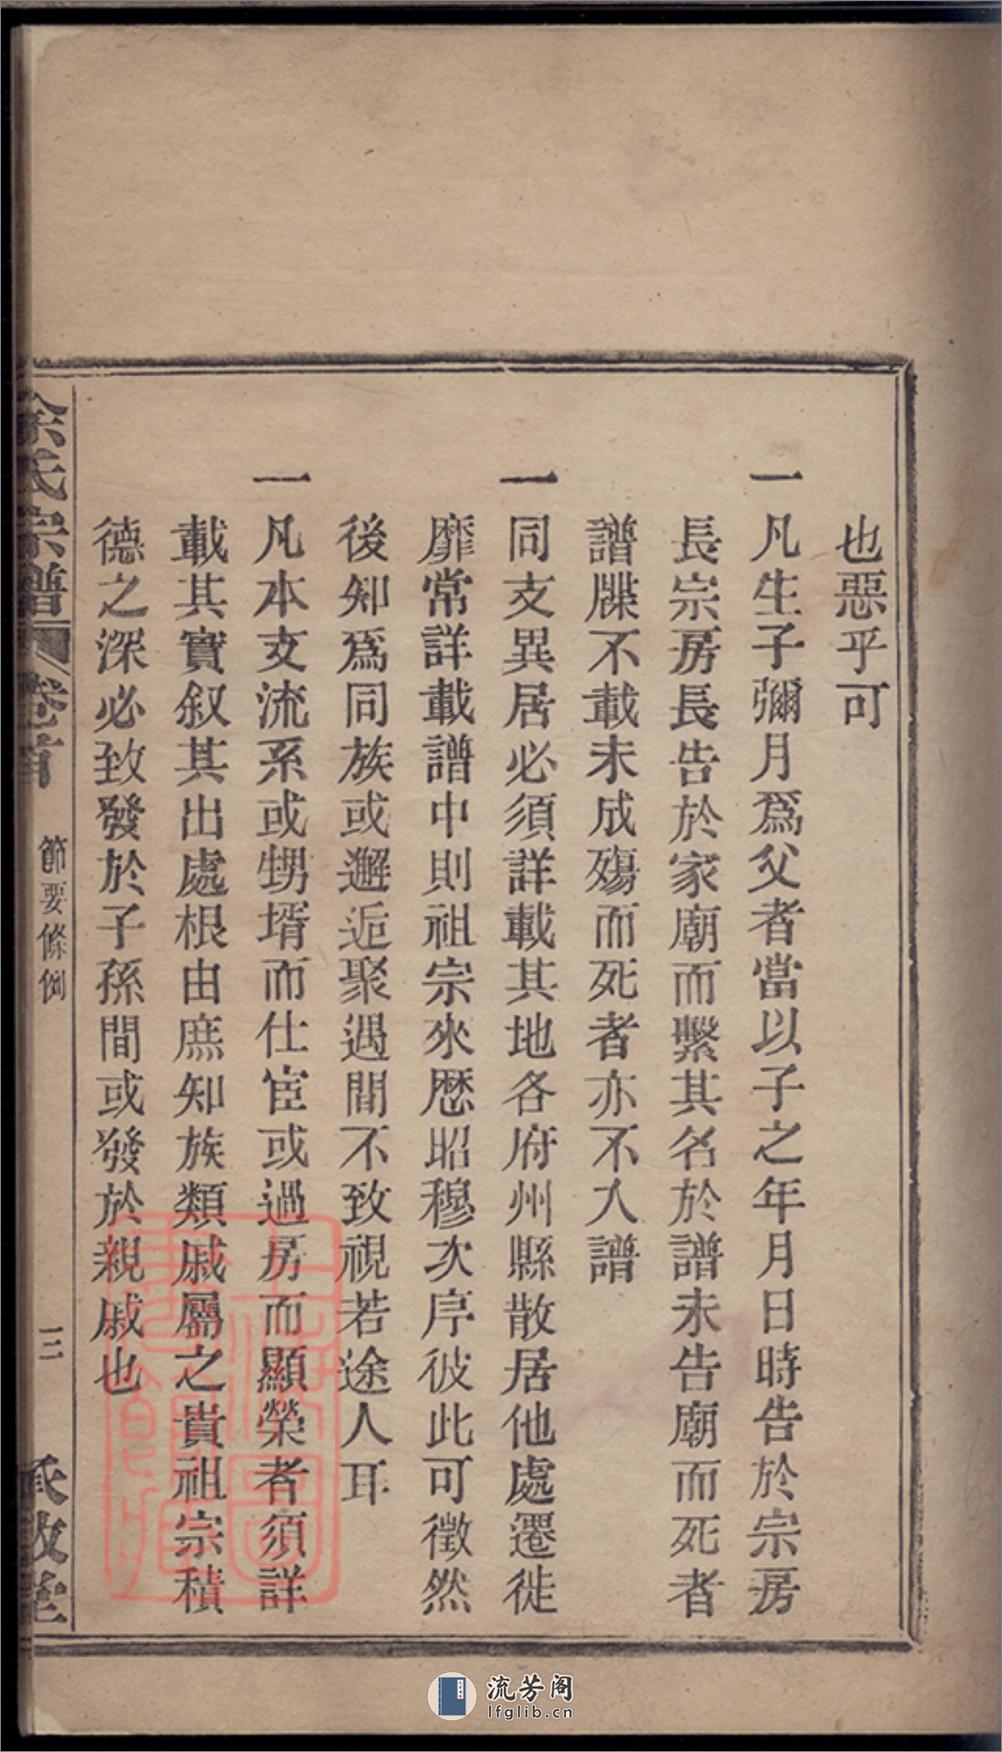 也惡乎可
一凡生子彌月爲父者當以子之年月日時告於宗房
長宗房長告於家廟而繫其名於譜未告廟而死者
譜牒不載未成殤而死者亦不入譜
一同支異居必須詳載其地各府州縣散居他處遷徙
靡常詳載譜中則祖宗來歷昭穆次序彼此可徵然
後知爲同族或邂逅聚遇間不致視若途人耳
一凡本支流系或甥壻而仕宦或過房而顯榮者須詳
載其實叙其出處根由庶知族類戚屬之貴祖宗積
德之深必致發於子孫間或發於親戚也
余氏宗譜 卷首 節要條例 三
流芳阁
lfglib.cn